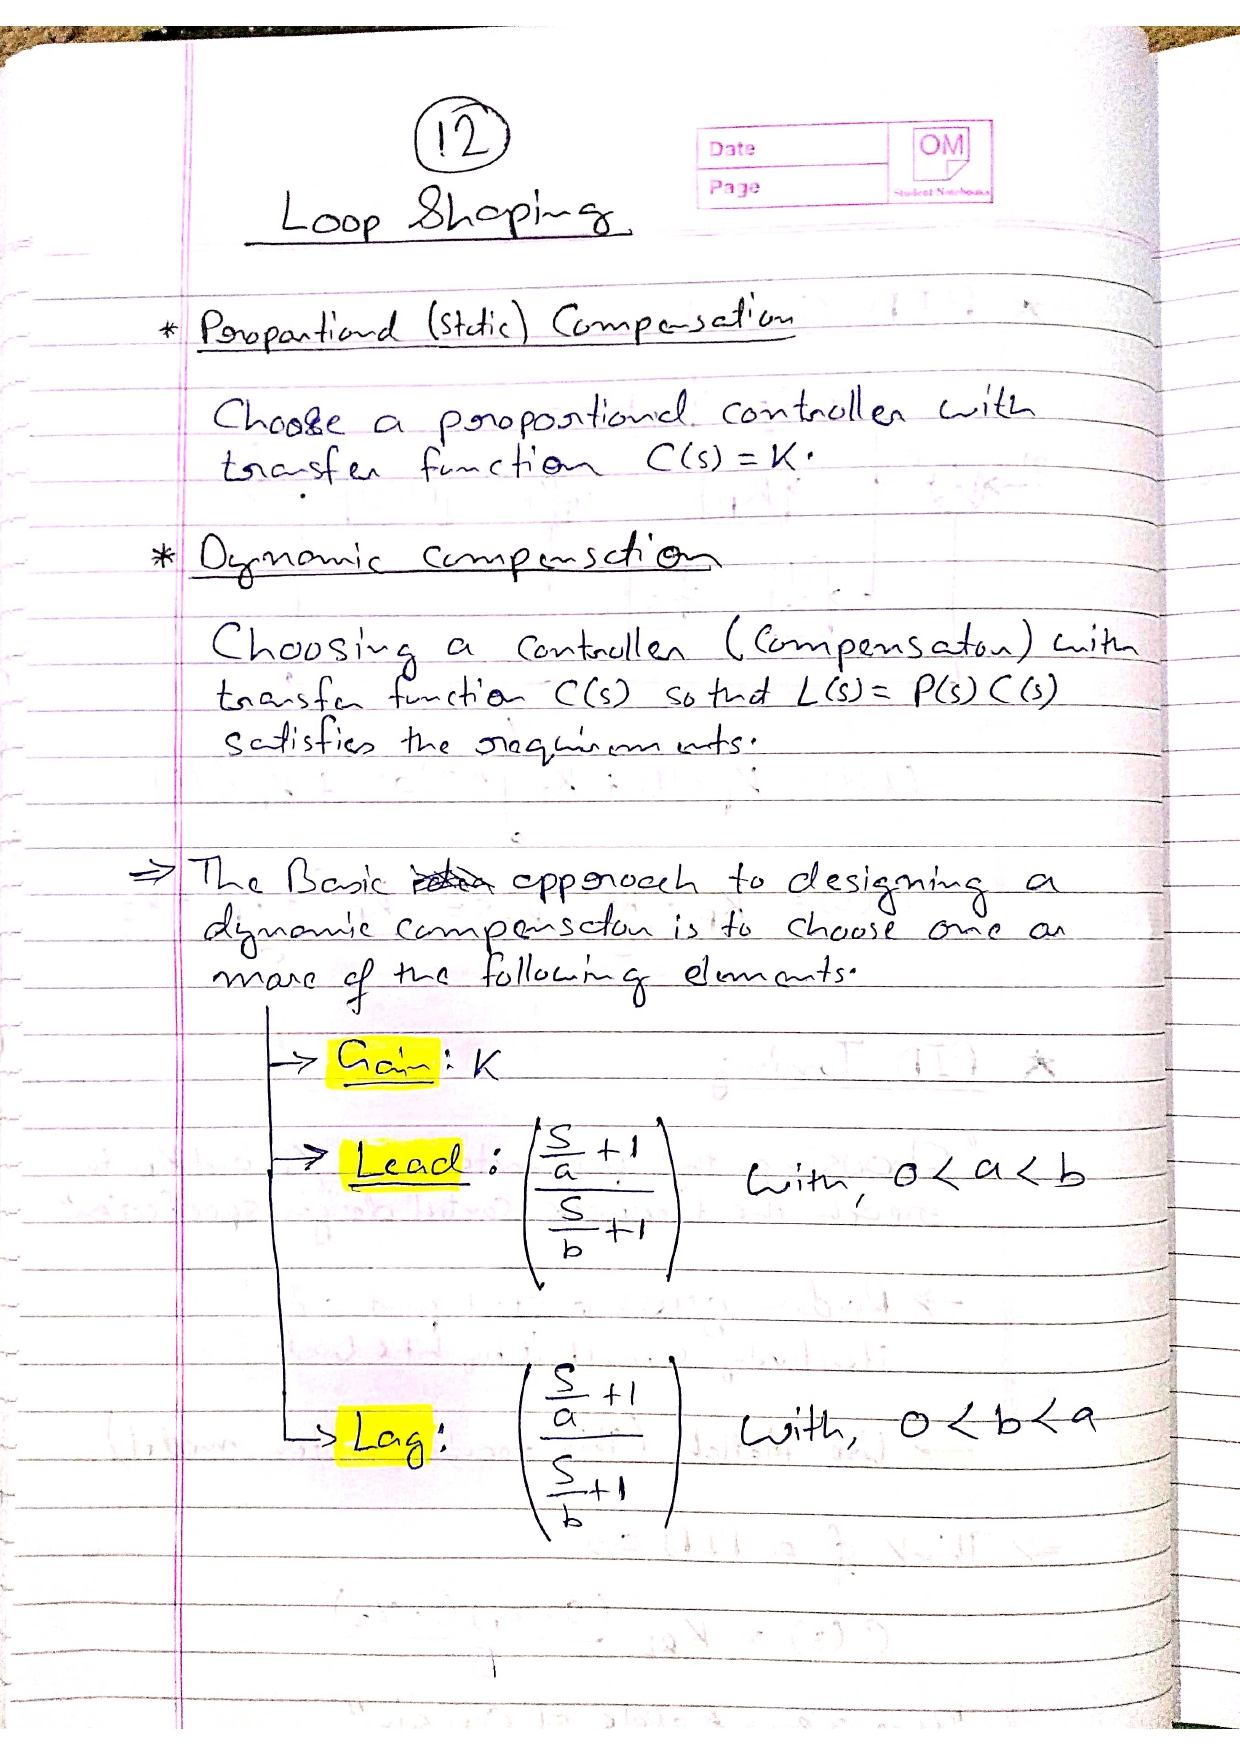 12
Date
OM
Page
Student Notebooks
Loop Shaping
* Proportional (Static) Compensation
Choose a proportional controller with
transfer function C(s) = K.
* Dynamic Compensation
Choosing a controller (Compensator) with
transfer function C(s) so that L(s) = P(s) C(s)
satisfies the requirements.
⇒ The Basic approach to designing a
dynamic compensator is to choose one or
more of the following elements.
→ Gain: K
→ Lead: ((s/a + 1)/(s/b + 1)) with, 0 < a < b
→ Lag: ((s/a + 1)/(s/b + 1)) with, 0 < b < a